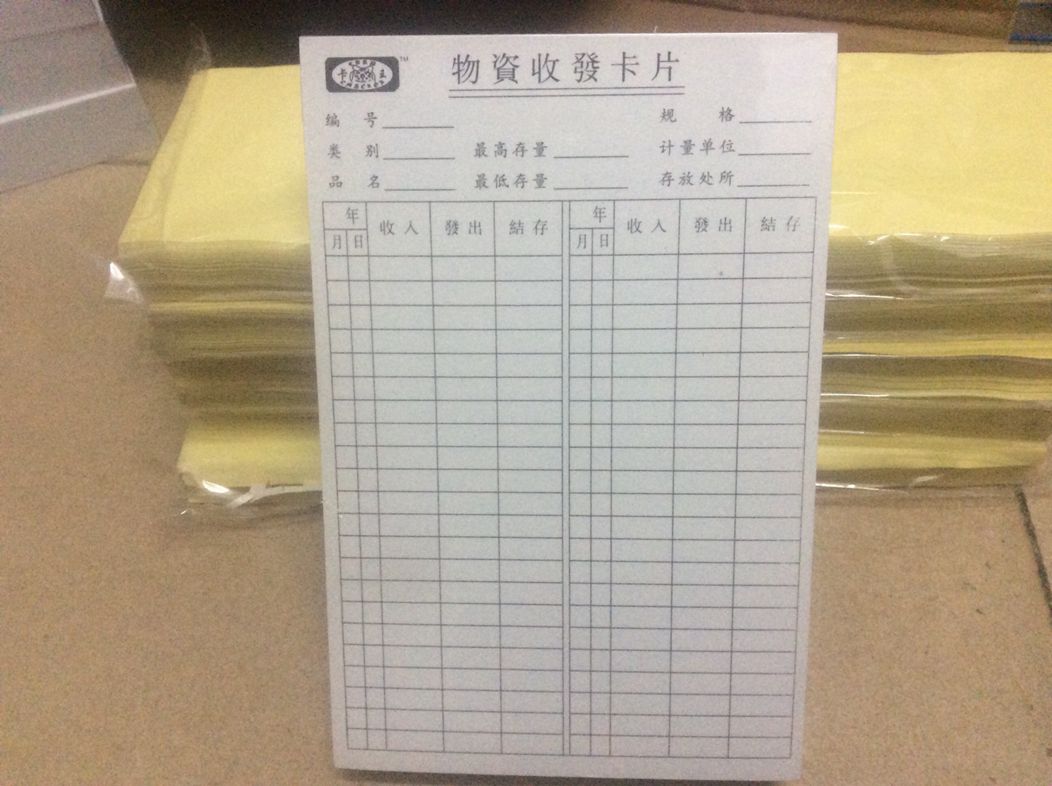 卡王 TM
物資收發卡片
编号 规格
类别 最高存量 计量单位
品名 最低存量 存放处所
年 收入 發出 結存 年 收入 發出 結存
月 日 月 日